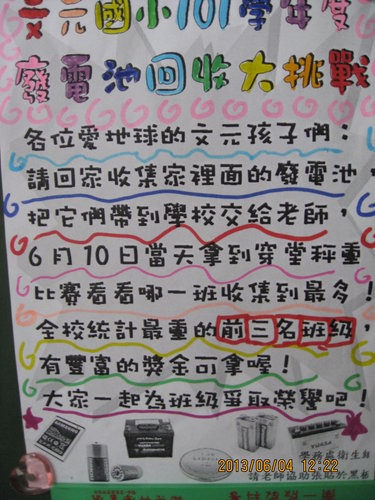 文元國小101學年度
廢電池回收大挑戰
各位愛地球的文元孩子們：
請回家收集家裡面的廢電池，
把它們帶到學校交給老師，
6月10日當天拿到穿堂秤重
比賽看看哪一班收集到最多！
全校統計最重的前三名班級，
有豐富的獎金可拿喔！
大家一起為班級爭取榮譽吧！
學務處衛生組
請老師協助張貼於黑板
2013/06/04 12:22